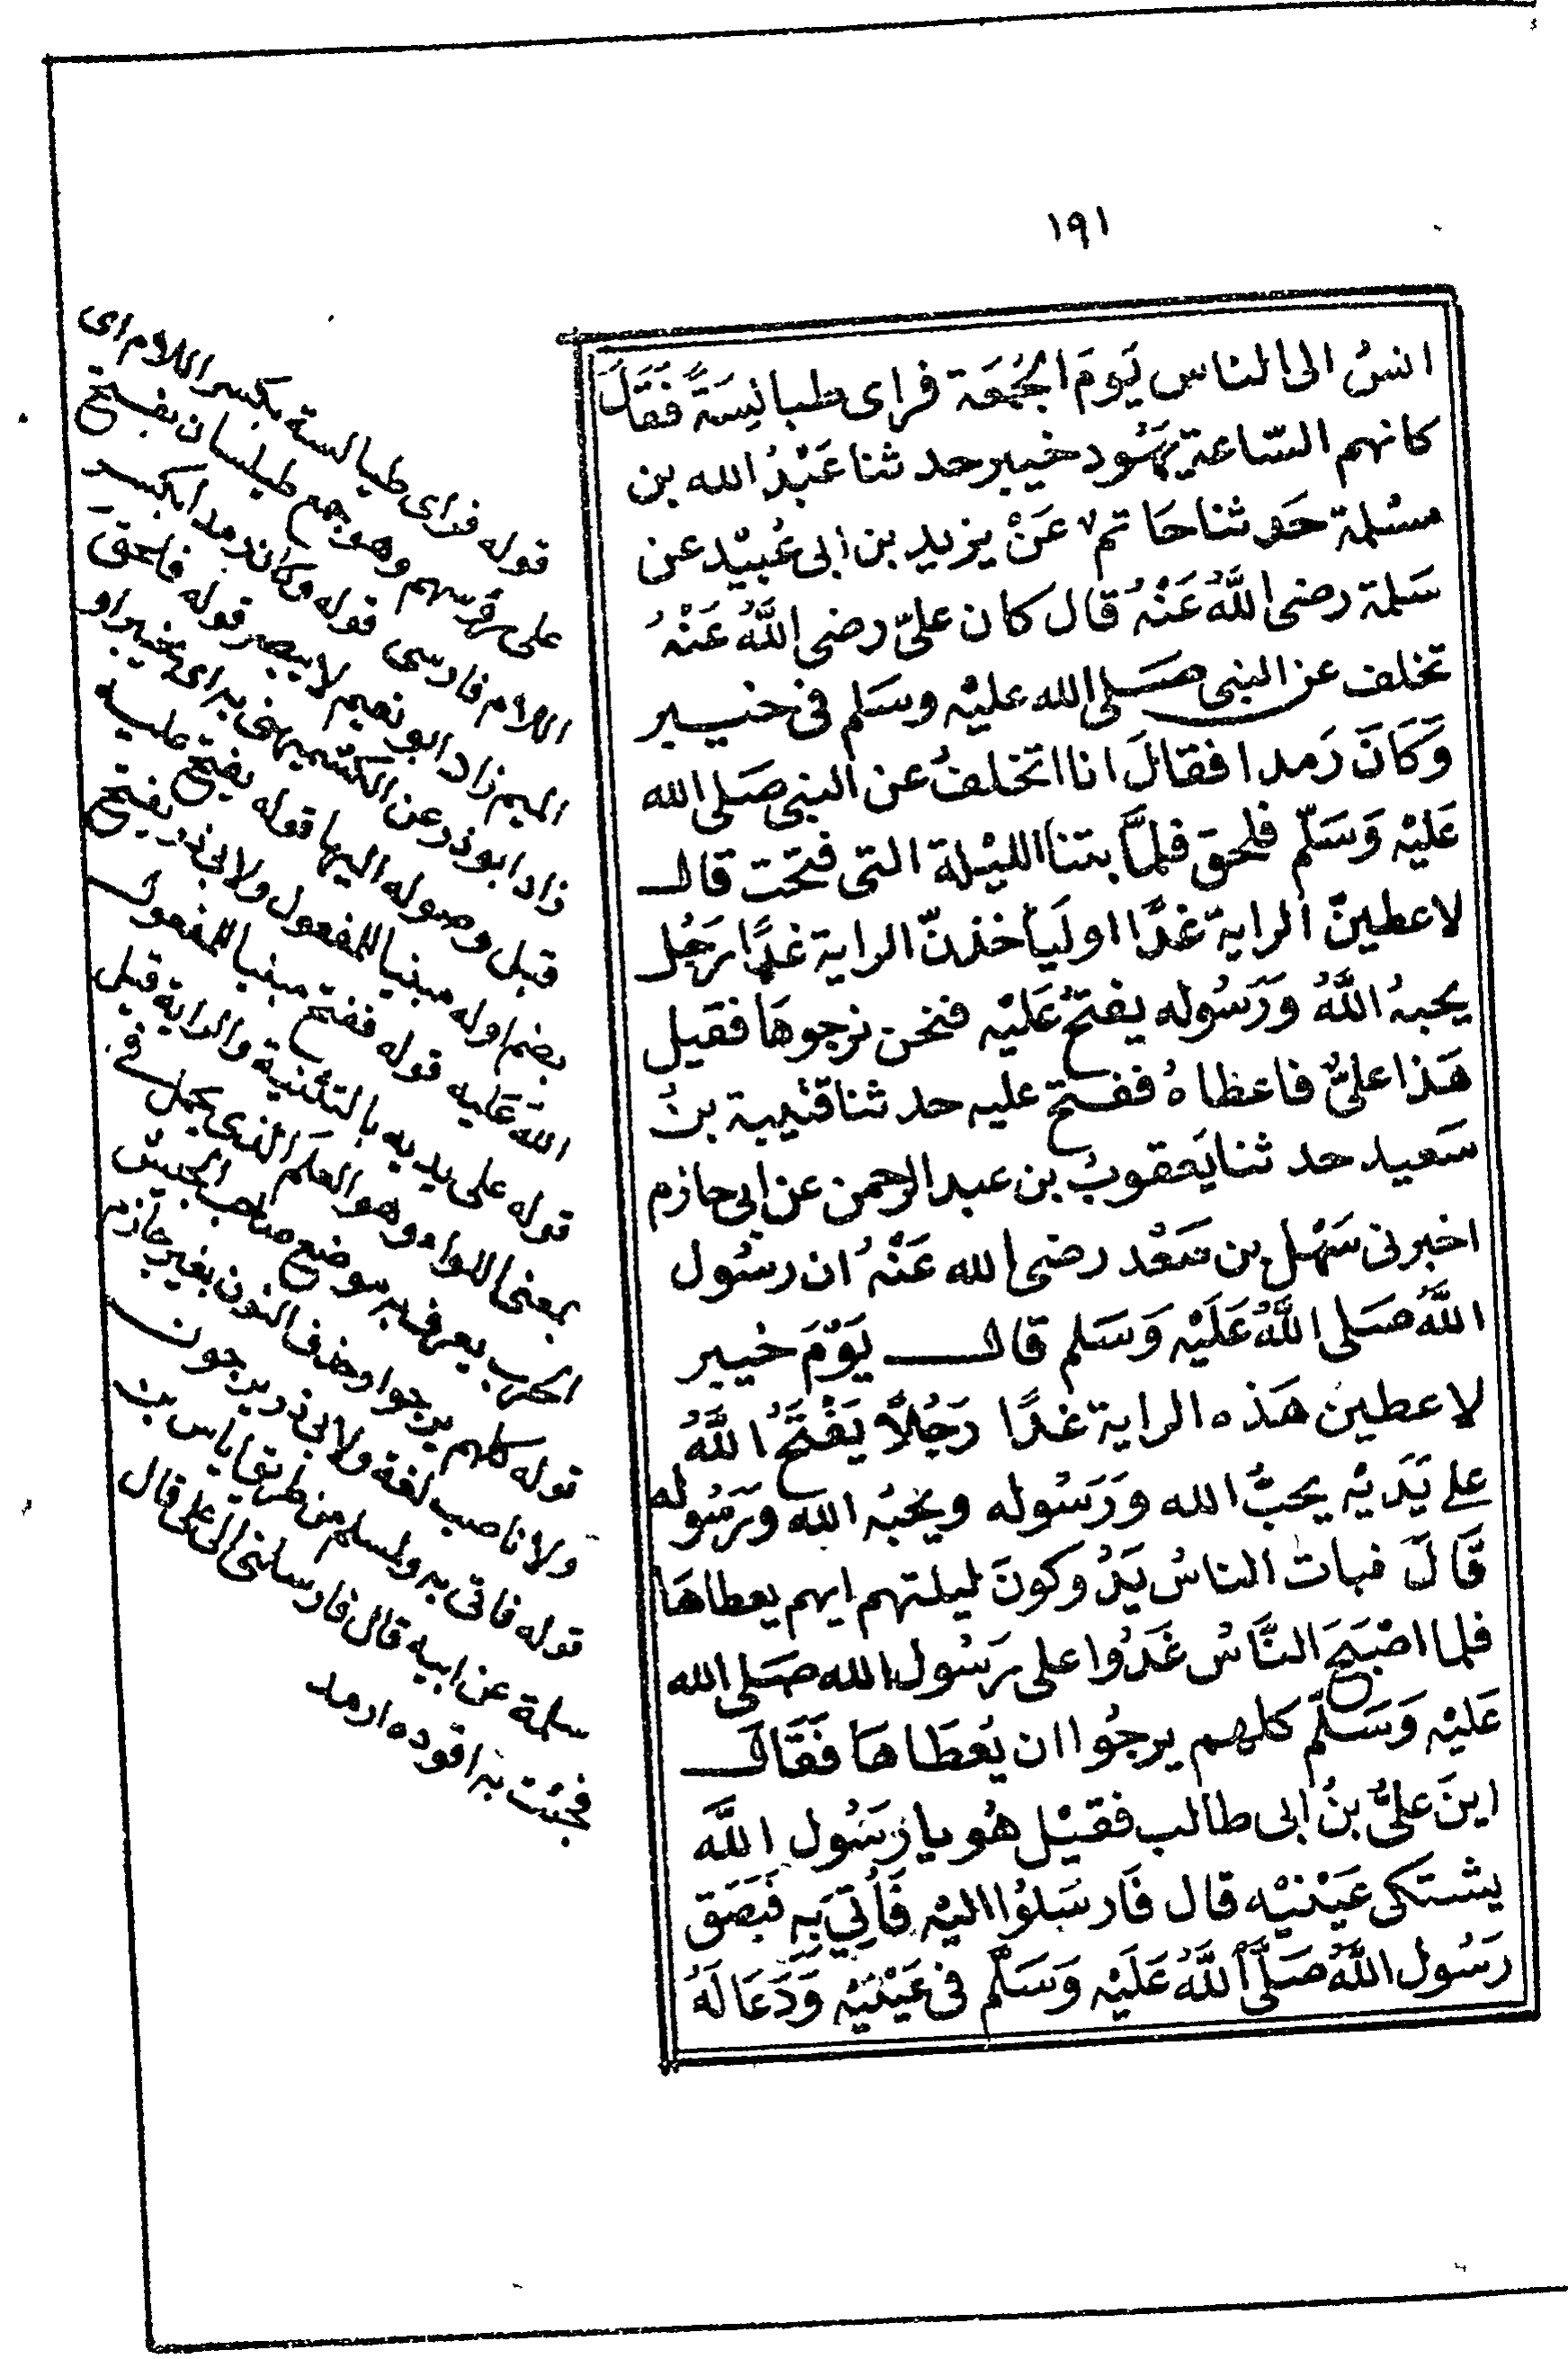 ١٩١
انسُ الى الناس يَومَ الجُمعَة فراى طيالِسَةً فَقَالَ
كانهم السّاعة يَهُود خيبر حد ثنا عَبْدُ الله بن
مسْلمة حَد ثنا حَا تم عَنْ يزيد بن ابى عُبيْد عن
سَلمة رضى اللَّهُ عَنْهُ قال كان علىّ رضى اللَّهُ عَنْهُ
تخلف عن النبى صَلى الله عليْه وسَلم فى خيبر
وَكَانَ رَمدا فقالَ انا اتخلفُ عن النبى صَلى الله
عَليْه وَسَلّم فلحق فلمَّا بتنا الليْلة التى فتحت قال
لاعطينّ الراية غدًا او ليَأخذنّ الراية غدًا رَجُل
يحبهُ اللَّهُ وَرَسُوله يفتحُ عَليْه فنحن نرجوهَا فقيل
هَذا علىٌّ فاعطاهُ ففتح عليه حد ثنا قتيبة بنُ
سَعيد حد ثنا يَعقوبُ بن عبد الرحمن عن ابى حازم
اخبرنى سَهْل بن سَعْد رضى الله عَنْهُ ان رسُول
اللَّهُ صَلى اللَّهُ عَلَيْه وَسَلم قال يَوْمَ خيبر
لاعطين هَذه الراية غدًا رَجُلاً يَفْتَحُ اللَّهُ
على يَدَيْه يحبُّ الله وَرَسُوله ويحبُه الله وَرَسُوله
قَالَ فبات الناسُ يَدُ وكونَ ليلتهم ايهم يعطاهَا
فلما اصْبَحَ النَّاسُ غَدُوا على رَسُول الله صَلى الله
عَليْه وَسَلّم كلهم يرجُوا ان يُعطَاهَا فَقَال
اينَ علىُّ بنُ ابى طالب فقيْل هُو يا رَسُول اللَّه
يشتكى عَيْنيْه قال فَارسَلوُا اليْه فَأُتِيَ بَه فَبَصَق
رَسُول اللَّهُ صَلَّى اللَّهُ عَلَيْه وَسَلَّم فى عَيْنَيْه وَدَعَا لَهُ
قوله فراى طيالسة بكسر اللام اى
على رؤسهم وهو جمع طيلسان بفتح
اللام فارسى قوله وكان رمدا بكسر
الميم زاد ابو نعيم لا يبصر قوله فلحق
زاد ابو ذر عن الكشميهنى به اى بخيبر او
قبل وصوله اليها قوله يفتح عليه
بضم اوله مبنيا للمفعول ولابى ذر يفتح
الله عَليه قوله ففتح مبنيا للمفعول
قوله على يديه بالتثنية والراية قيل
بمعنى اللواء وهو العلم الذى يحمل فى
الحرب يعرف به موضع صاحب الجيش
قوله كلهم يرجوا وحذف النون بغير جازم
ولا ناصب لغة ولابى ذر يرجون
قوله فاتى به ولمسلم من طريق اياس بن
سلمة عن ابيه قال فارسلنى الى على قال
فجئت به اقوده ارمد